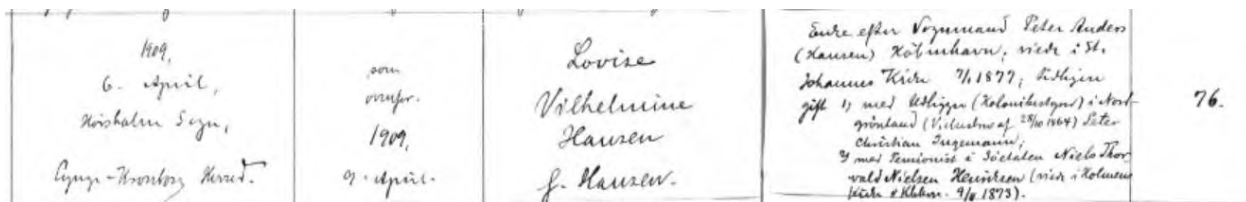 1909,
6. April,
Hørsholm Sogn,
Lynge-Kronborg Herred.
som
ovenfor.
1909,
9. April.
Lovise
Vilhelmine
Hansen
f. Hansen.
Enke efter Vognmand Peter Anders
(Hansen) København; viede i St.
Johannes Kirke 7/1 1877; tidligere
gift 1) med Udligger (Kolonibestyrer) i Nord-
grønland (Vielsesbrev af 28/10 1864) Peter
Christian Ingemann;
2) med Pensionist i Søetaten Niels Thor
vald Nielsen Henriksen (viede i Holmens
Kirke Kbhvn. 9/11 1873).
76.